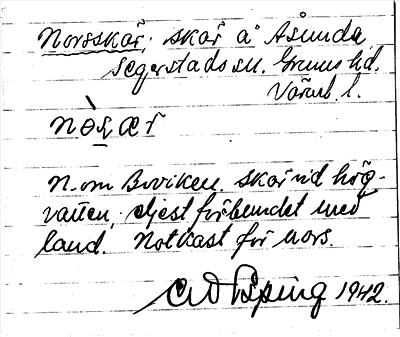 Norsskär; skär å Åsunda
Segerstads sn. Grums hd.
Värml. l.
N. om Boviken. Skär vid hög-
vatten, eljest förbundet med
land. Notkast för nors.
1942.